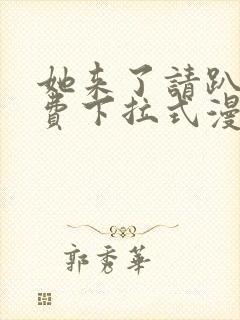 她来了請趴
費下拉式漫
郭秀華